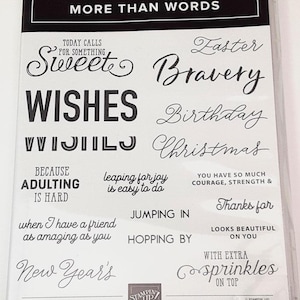 MORE THAN WORDS
TODAY CALLS
FOR SOMETHING
Sweet
Easter
Bravery
WISHES
WISHES
Birthday
Christmas
BECAUSE
ADULTING
IS HARD
leaping for joy
is easy to do
YOU HAVE SO MUCH
COURAGE, STRENGTH &
Thanks for
when I have a friend
as amazing as you
JUMPING IN
HOPPING BY
LOOKS BEAUTIFUL
ON YOU
New Year's
STAMPIN' UP!
WITH EXTRA
sprinkles
ON TOP